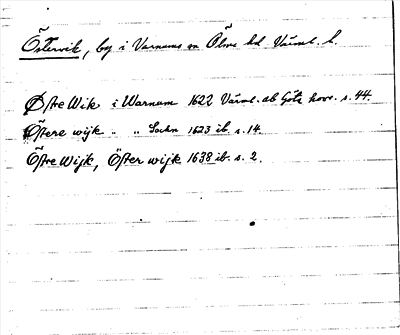 Östervik, by i Varnums sn Ölme hd Värml. l.
Østre Wik i Warnum 1622 Värml. ab Göta hovr. s. 44.
Östere wijk " " Sochn 1623 ib. s. 14
Östre Wijk, Öster wijk 1638 ib. s. 2.